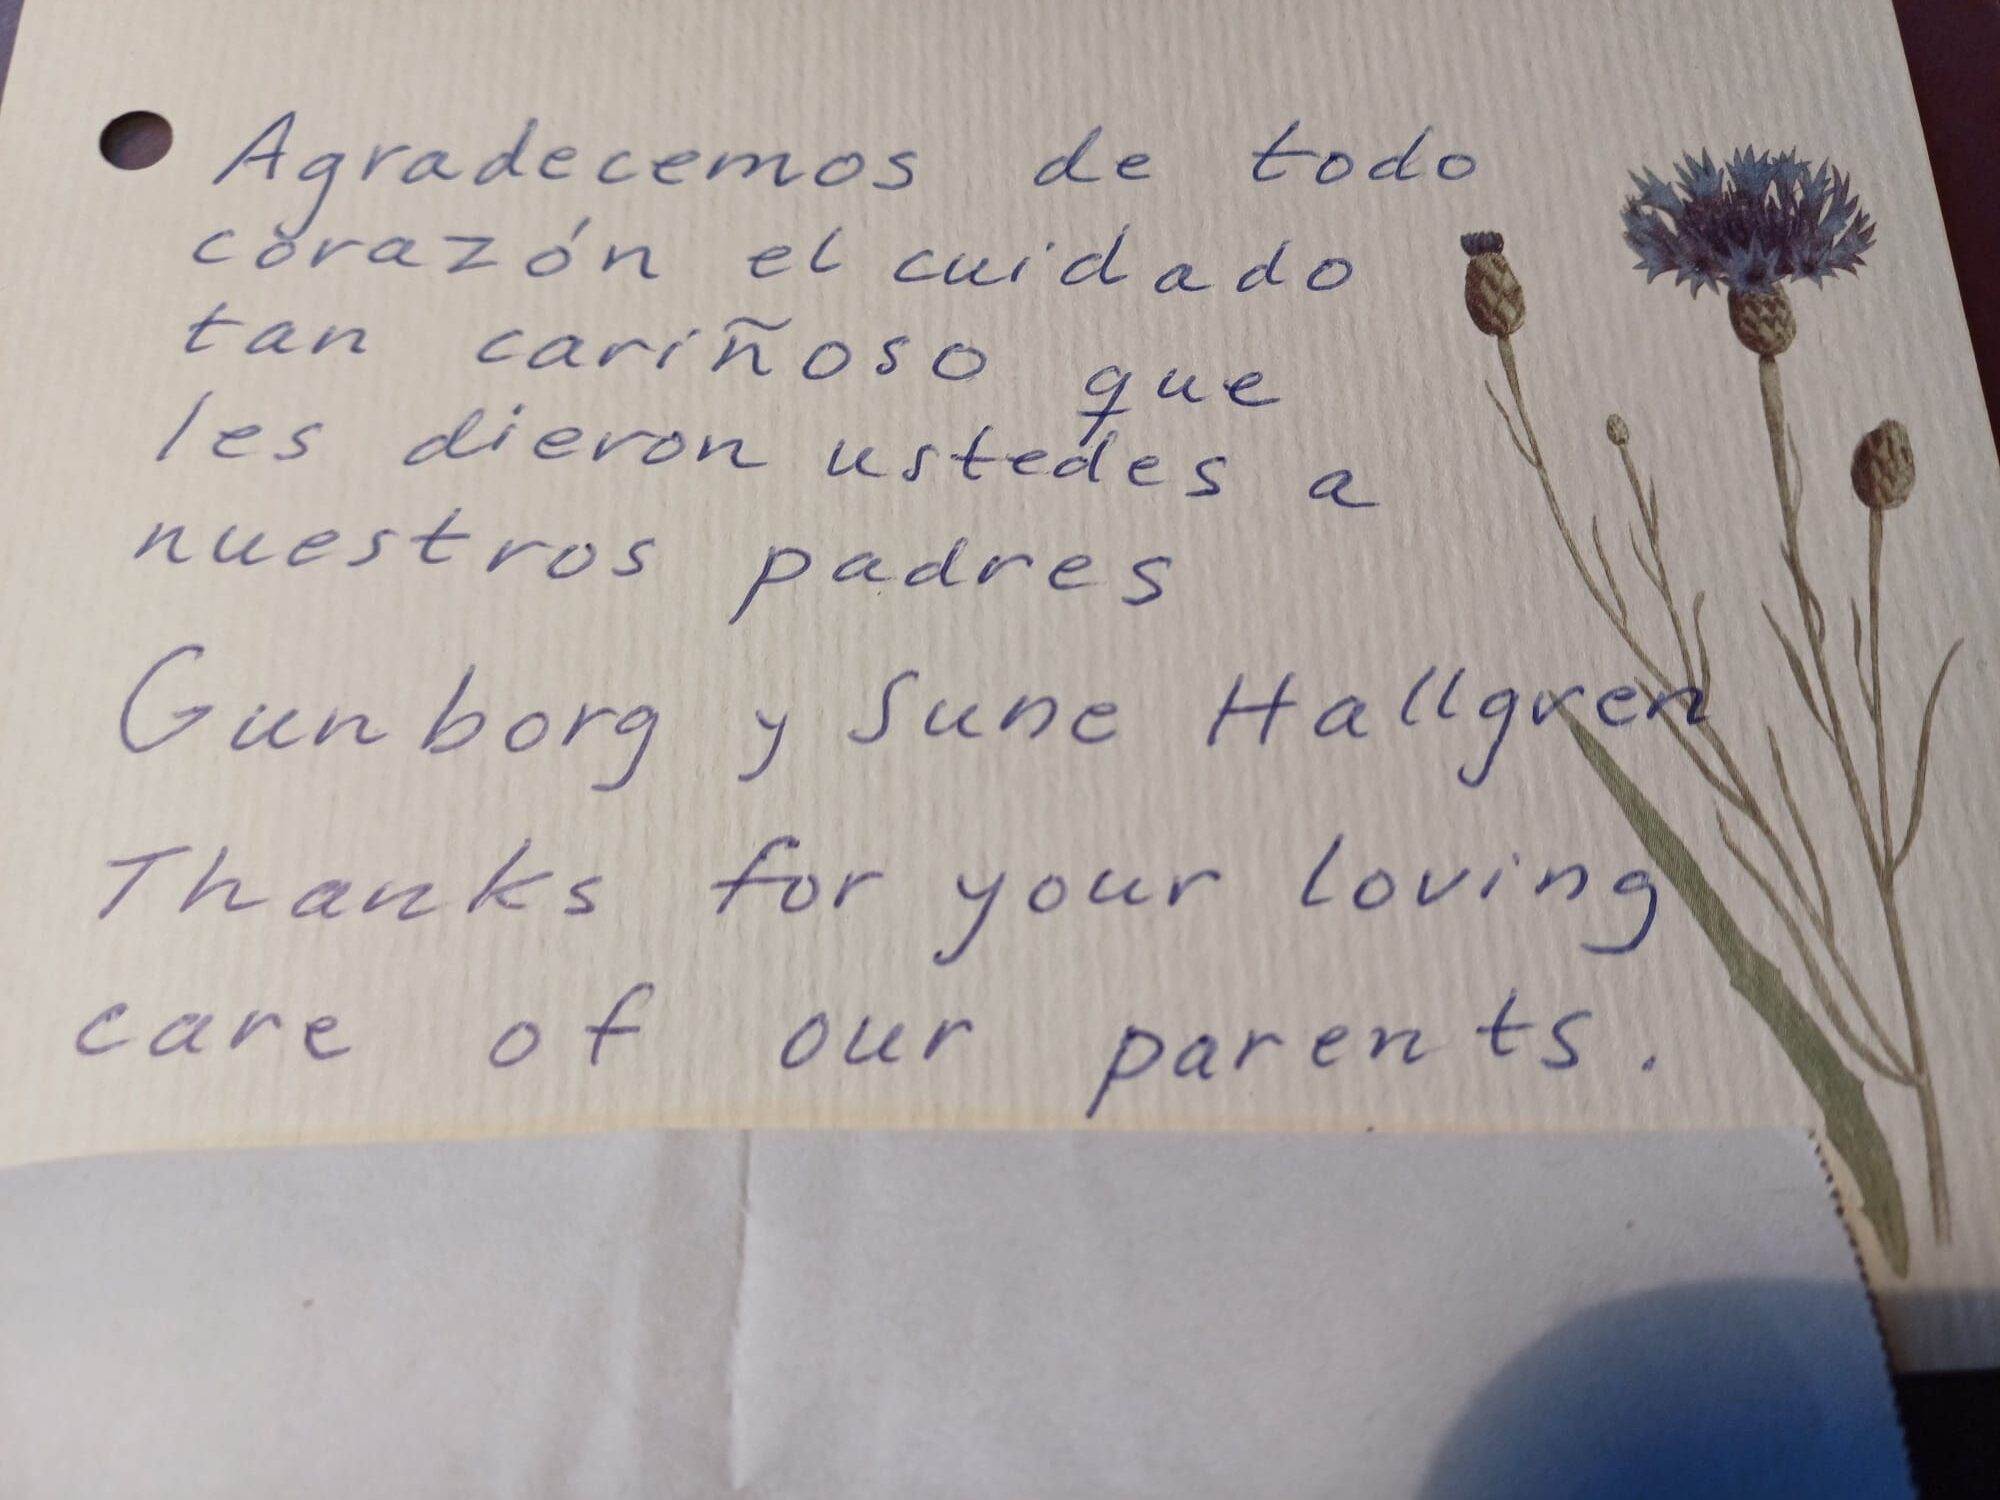 Agradecemos de todo
corazón el cuidado
tan cariñoso que
les dieron ustedes a
nuestros padres
Gunborg y Sune Hallgren
Thanks for your loving
care of our parents.